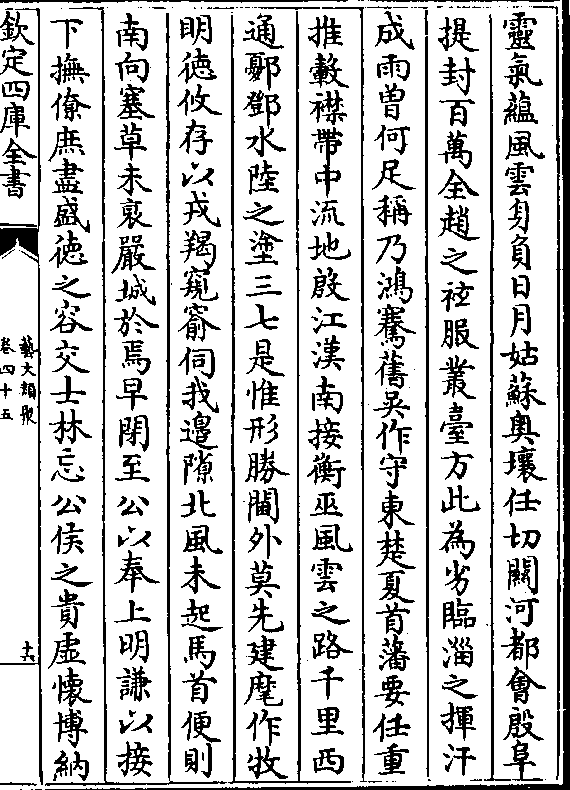 靈氣蘊風雲身負日月姑蘇奥壤任切關河都㑹殷阜
提封百萬全趙之袨服叢臺方此為劣臨淄之揮汗
成雨曽何足稱乃鴻騫舊吳作守東楚夏首藩要任重
推轂襟帶中流地殷江漢南接衡巫風雲之路千里西
通鄢鄧水陸之塗三七是惟形勝閫外莫先建麾作牧
明徳攸存以戎羯窺窬伺我邊隙北風未起馬首便則
南向塞草未衰嚴城於焉早閉至公以奉上明謙以接
下撫僚庶盡盛徳之容交士林忘公侯之貴虛懷博納
欽定四庫全書
藝文類聚
卷四十五
十六